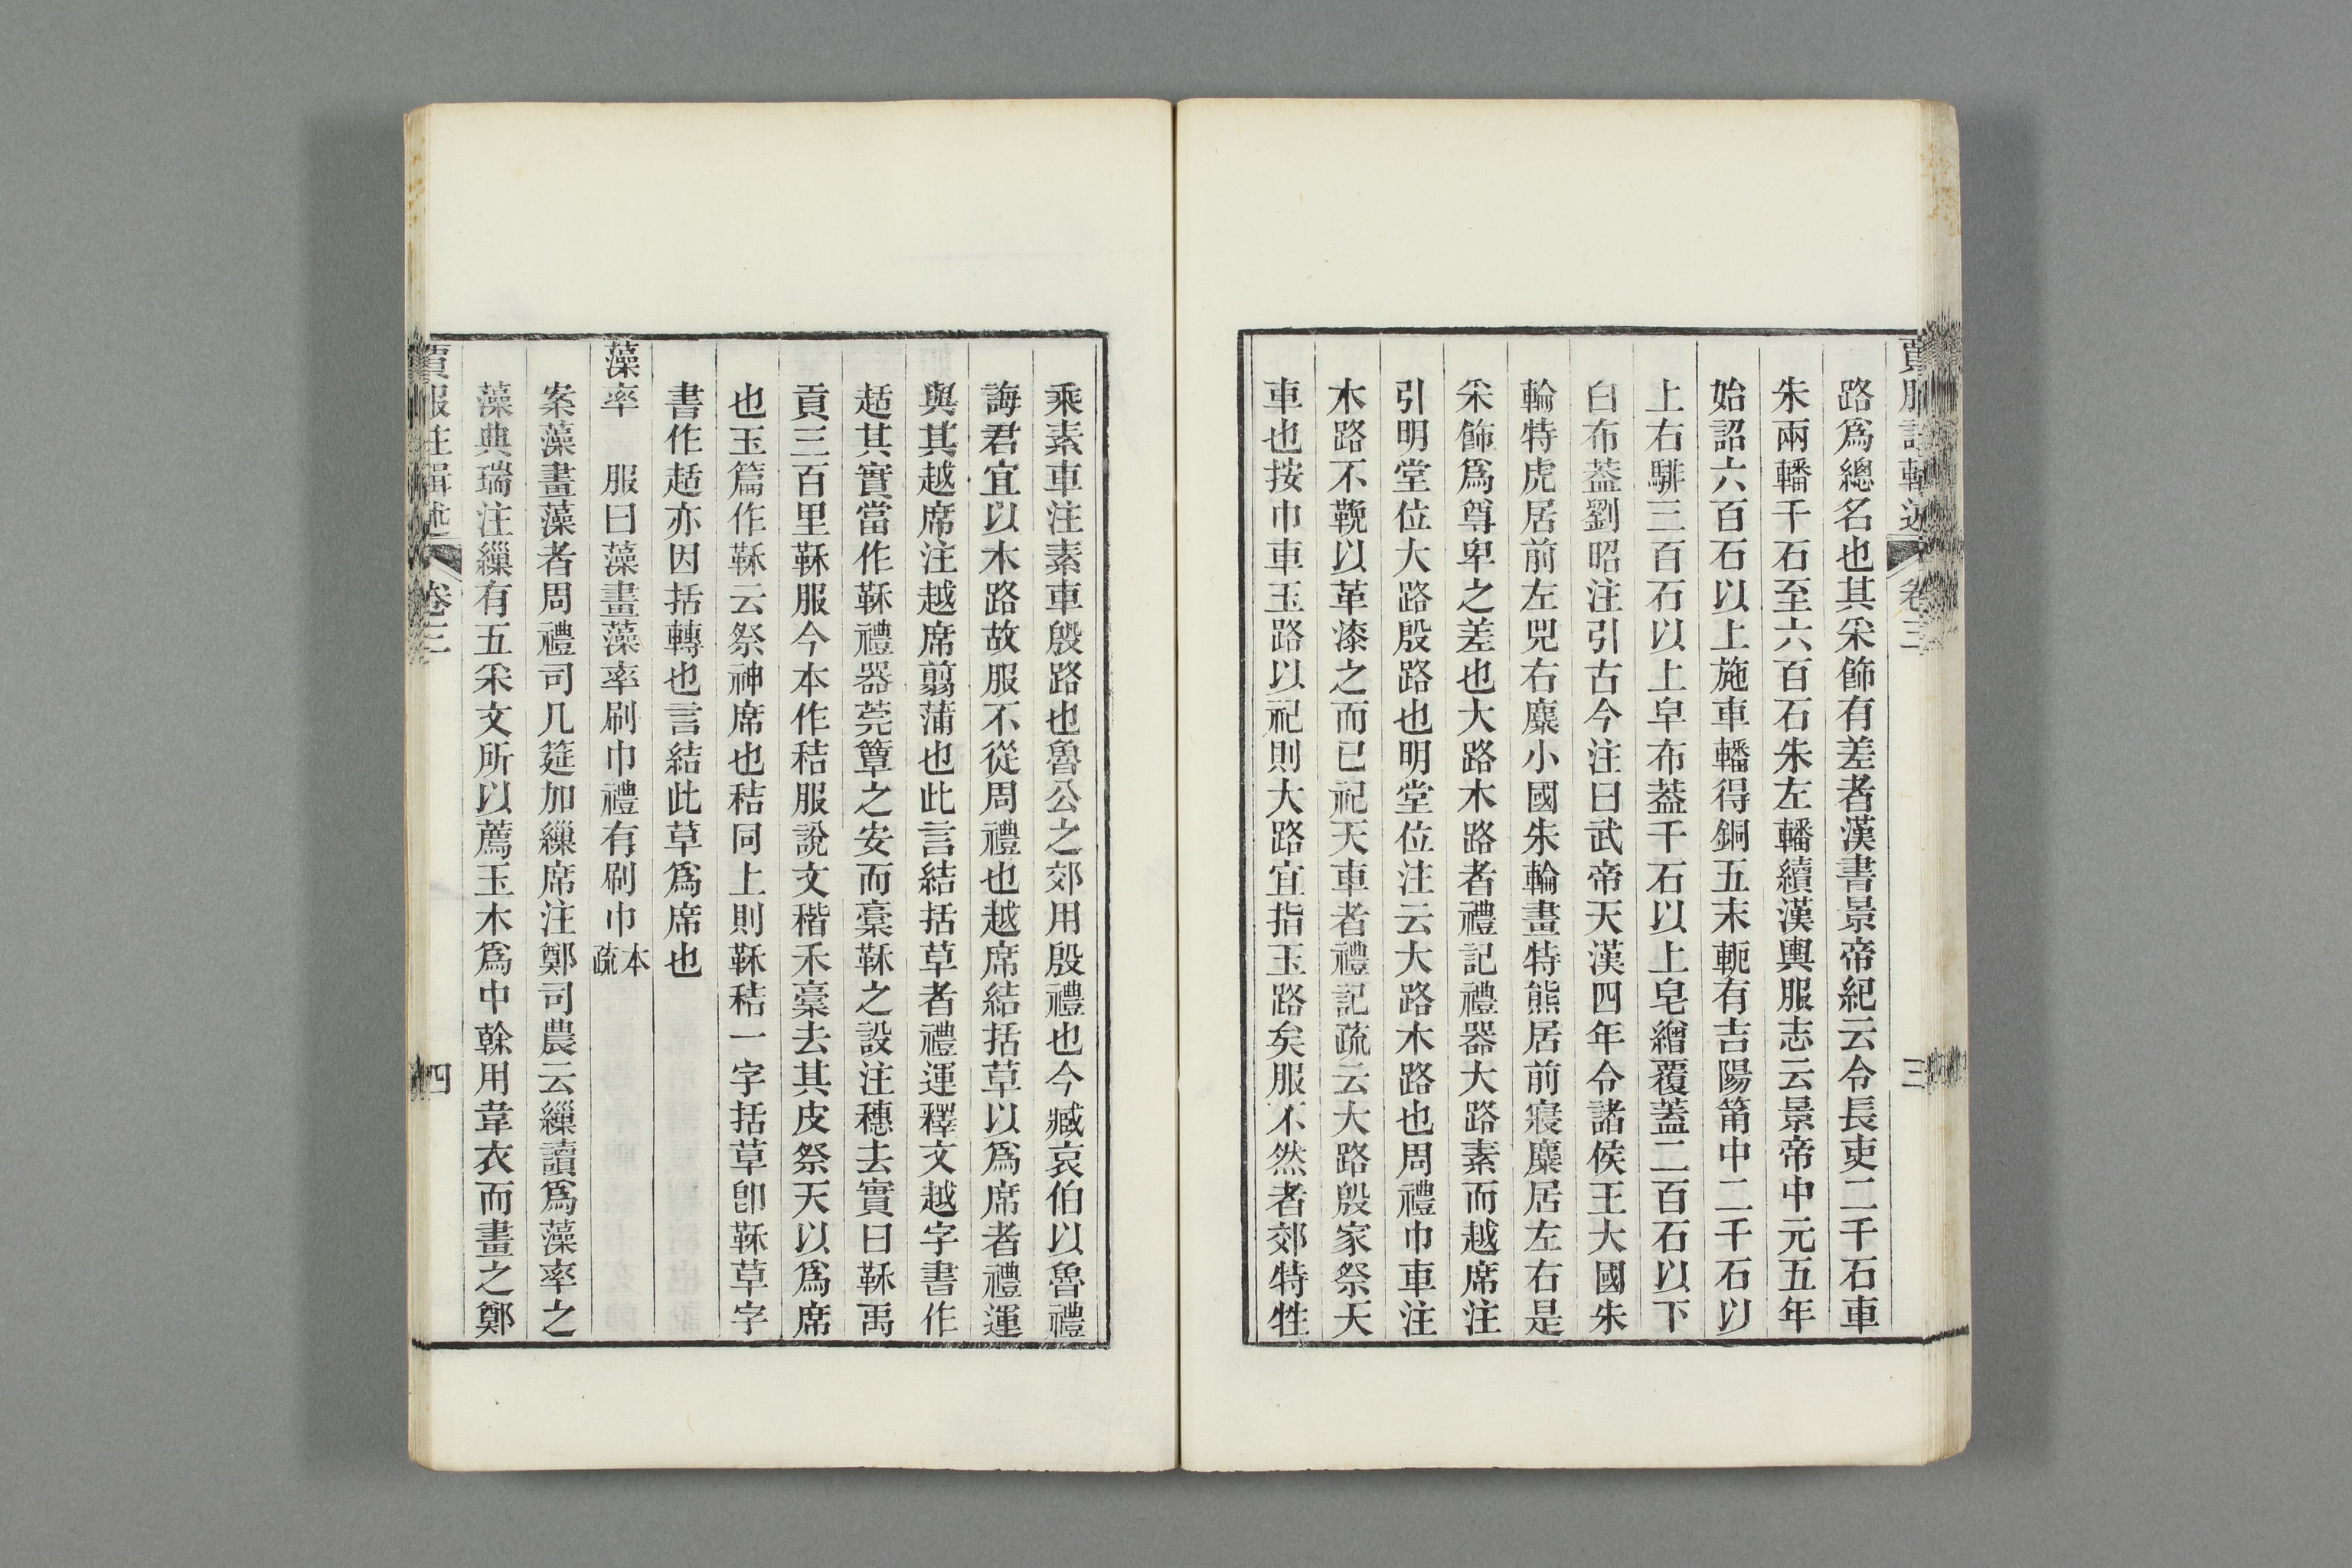 路爲總名也其采飾有差者漢書景帝紀云令長吏二千石車
朱兩轓千石至六百石朱左轓續漢輿服志云景帝中元五年
始詔六百石以上施車轓得銅五末軛有吉陽筩中二千石以
上右騑三百石以上皁布葢千石以上皂繒覆蓋二百石以下
白布葢劉昭注引古今注曰武帝天漢四年令諸侯王大國朱
輪特虎居前左兕右麋小國朱輪畫特熊居前寢麋居左右是
采飾爲尊卑之差也大路木路者禮記禮器大路素而越席注
引明堂位大路殷路也明堂位注云大路木路也周禮巾車注
木路不鞔以革漆之而已祀天車者禮記疏云大路殷家祭天
車也按巾車玉路以祀則大路宜指玉路矣服不然者郊特牲
乘素車注素車殷路也魯公之郊用殷禮也今臧哀伯以魯禮
誨君宜以木路故服不從周禮也越席結括草以爲席者禮運
與其越席注越席翦蒲也此言結括草者禮運釋文越字書作
趏其實當作䩭禮器莞簟之安而稾䩭之設注穗去實曰䩭禹
貢三百里䩭服今本作秸服說文稭禾稾去其皮祭天以爲席
也玉篇作䩭云祭神席也秸同上則䩭秸一字括草卽䩭草字
書作趏亦因括轉也言結此草爲席也
藻率　服曰藻畫藻率刷巾禮有刷巾本疏
案藻畫藻者周禮司几筵加繅席注鄭司農云繅讀爲藻率之
藻典瑞注繅有五采文所以薦玉木爲中榦用韋衣而畫之鄭
賈服注輯述　卷三　四